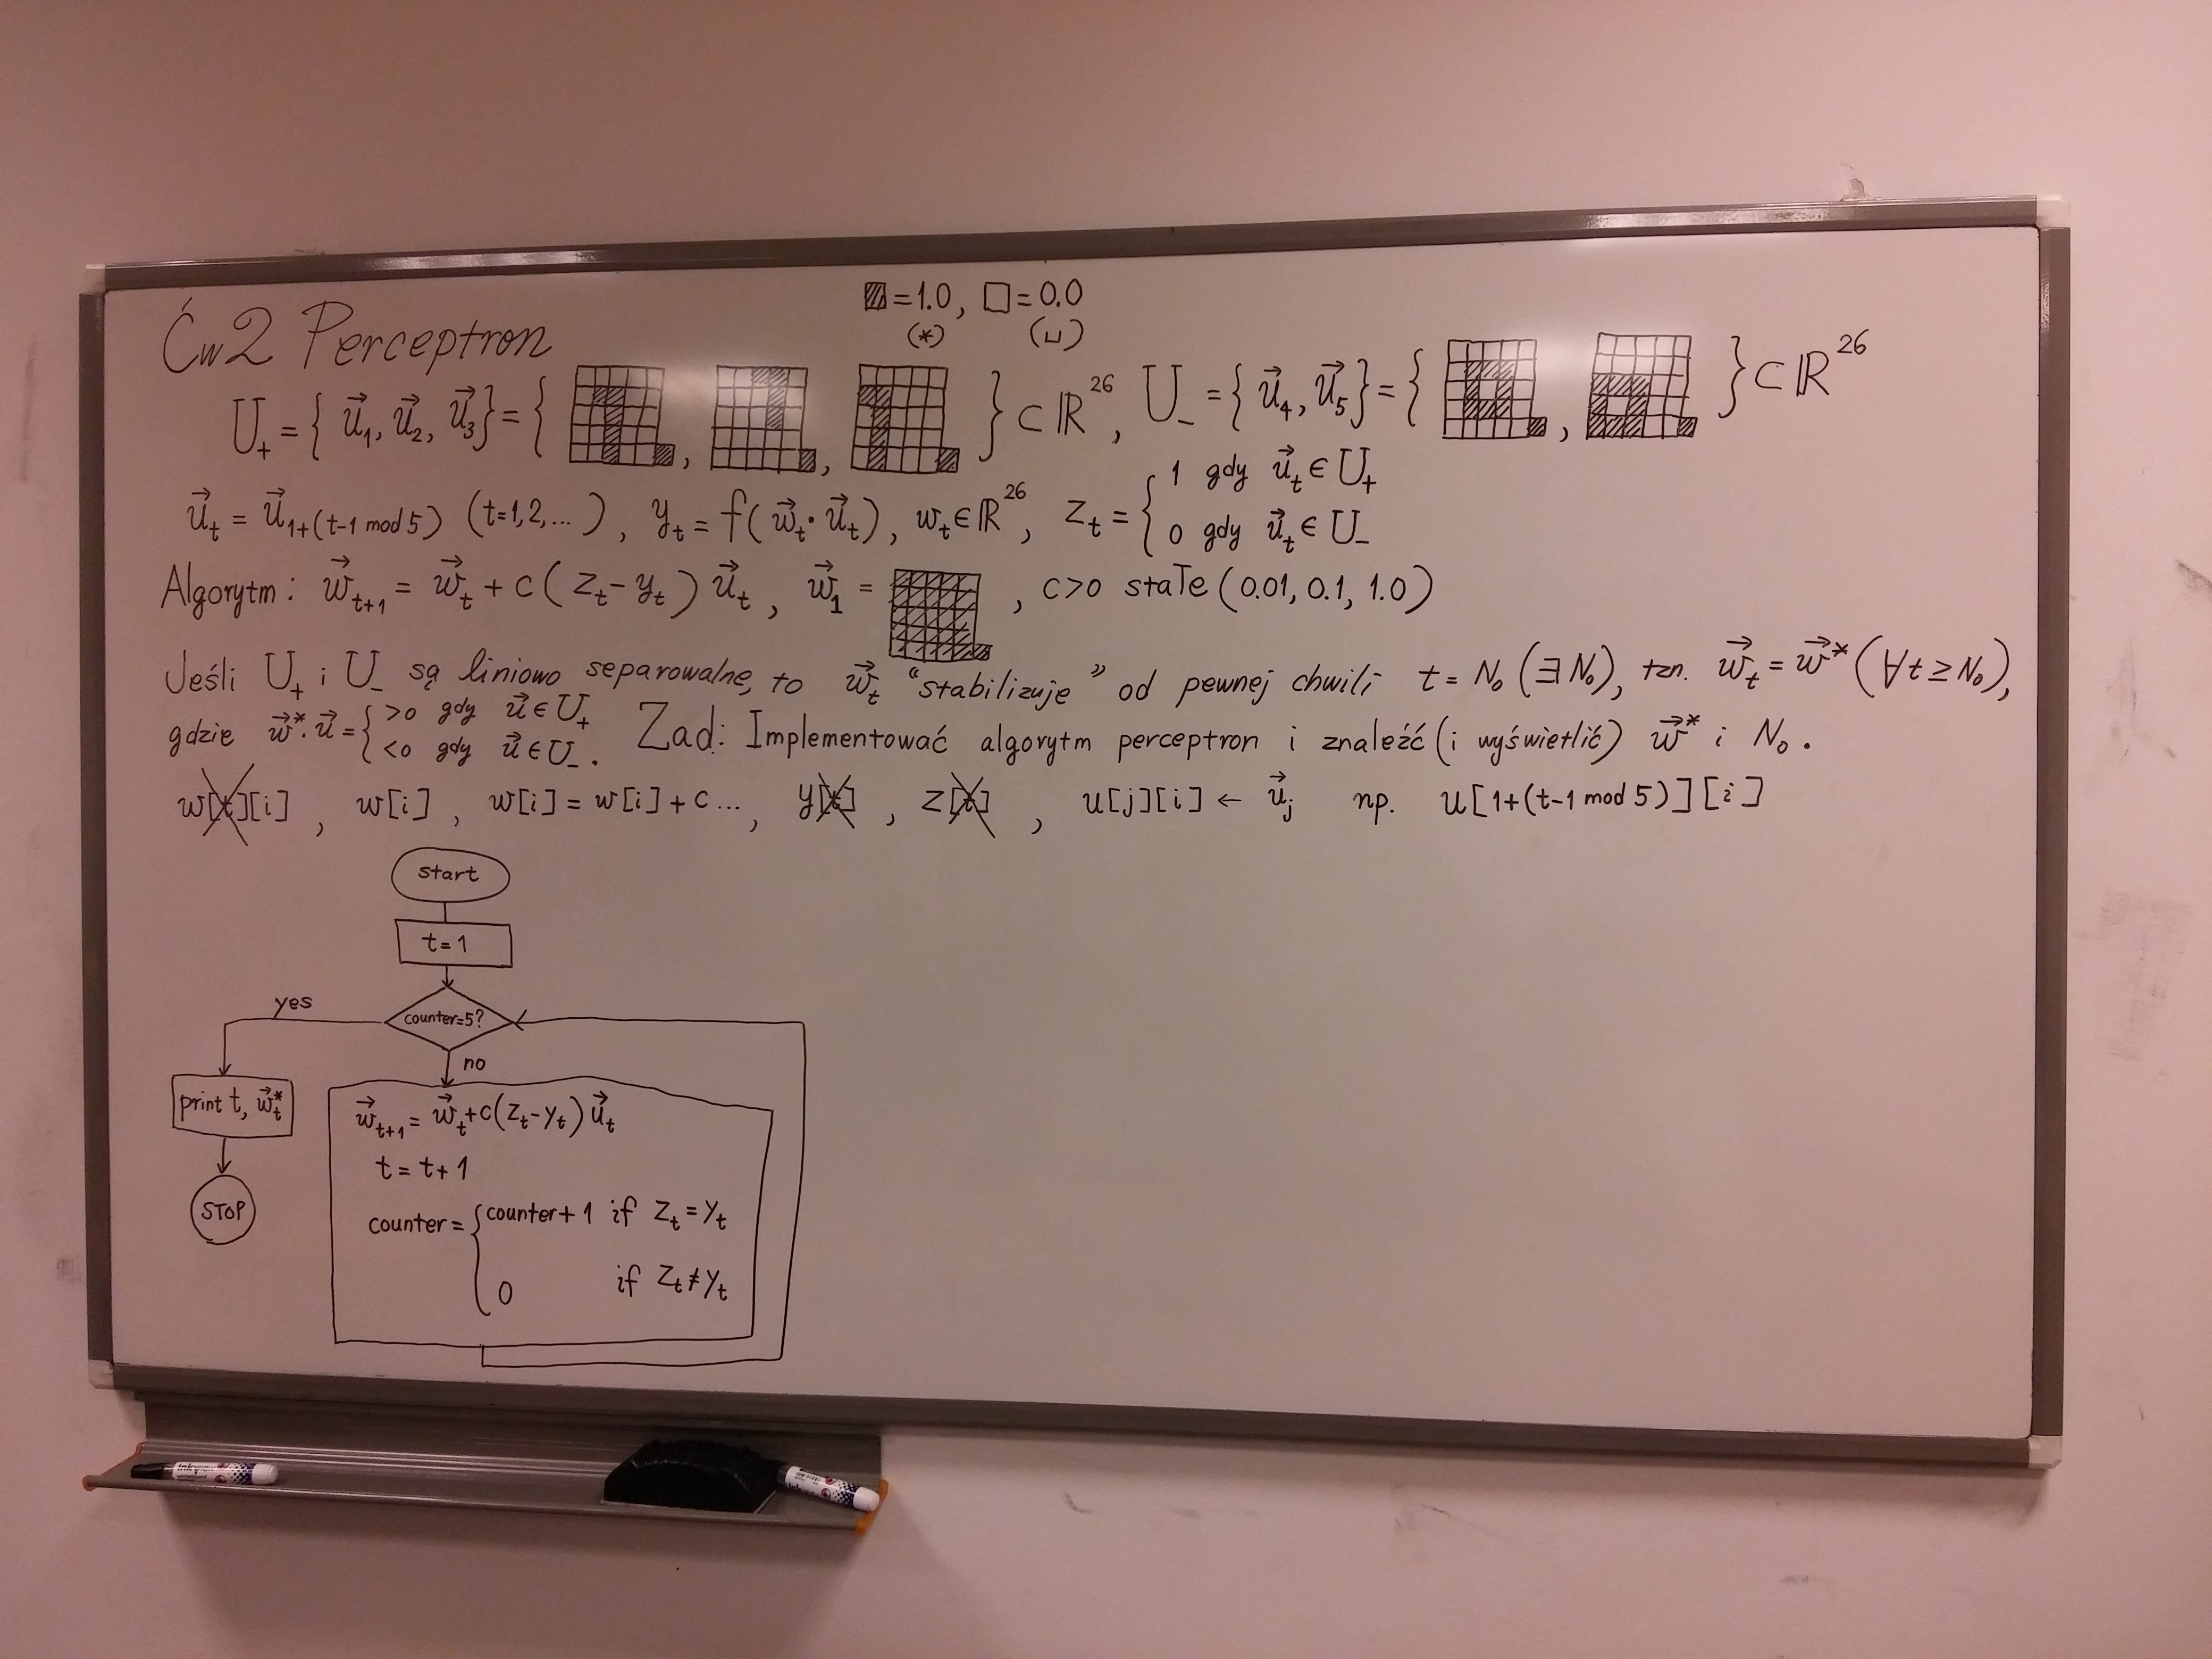 ▨=1.0, □=0.0
(*) (␣)
Ćw2 Perceptron
U₊ = { u⃗₁, u⃗₂, u⃗₃ } = { , , } ⊂ ℝ²⁶, U₋ = { u⃗₄, u⃗₅ } = { , } ⊂ ℝ²⁶
u⃗ₜ = u⃗₁₊₍ₜ₋₁ mod 5₎ (t=1,2,...), yₜ = f(w⃗ₜ·u⃗ₜ), wₜ∈ℝ²⁶, zₜ = { 1 gdy u⃗ₜ∈U₊
0 gdy u⃗ₜ∈U₋
Algorytm: w⃗ₜ₊₁ = w⃗ₜ + c(zₜ-yₜ)u⃗ₜ, w⃗₁ = , c>0 stałe (0.01, 0.1, 1.0)
Jeśli U₊ i U₋ są liniowo separowalne, to w⃗ₜ "stabilizuje" od pewnej chwili t=N₀ (∃N₀), tzn. w⃗ₜ = w⃗* (∀t≥N₀),
gdzie w⃗*·u⃗ = { >0 gdy u⃗∈U₊
<0 gdy u⃗∈U₋. Zad: Implementować algorytm perceptron i znaleźć (i wyświetlić) w⃗* i N₀.
w[t][i], w[i], w[i]=w[i]+c..., y[t], z[t], u[j][i] ← u⃗ⱼ np. u[1+(t-1 mod 5)][i]
start
t=1
counter=5?
yes
no
print t, w⃗ₜ*
STOP
w⃗ₜ₊₁ = w⃗ₜ+c(zₜ-yₜ)u⃗ₜ
t=t+1
counter = { counter+1 if zₜ=yₜ
0 if zₜ≠yₜ